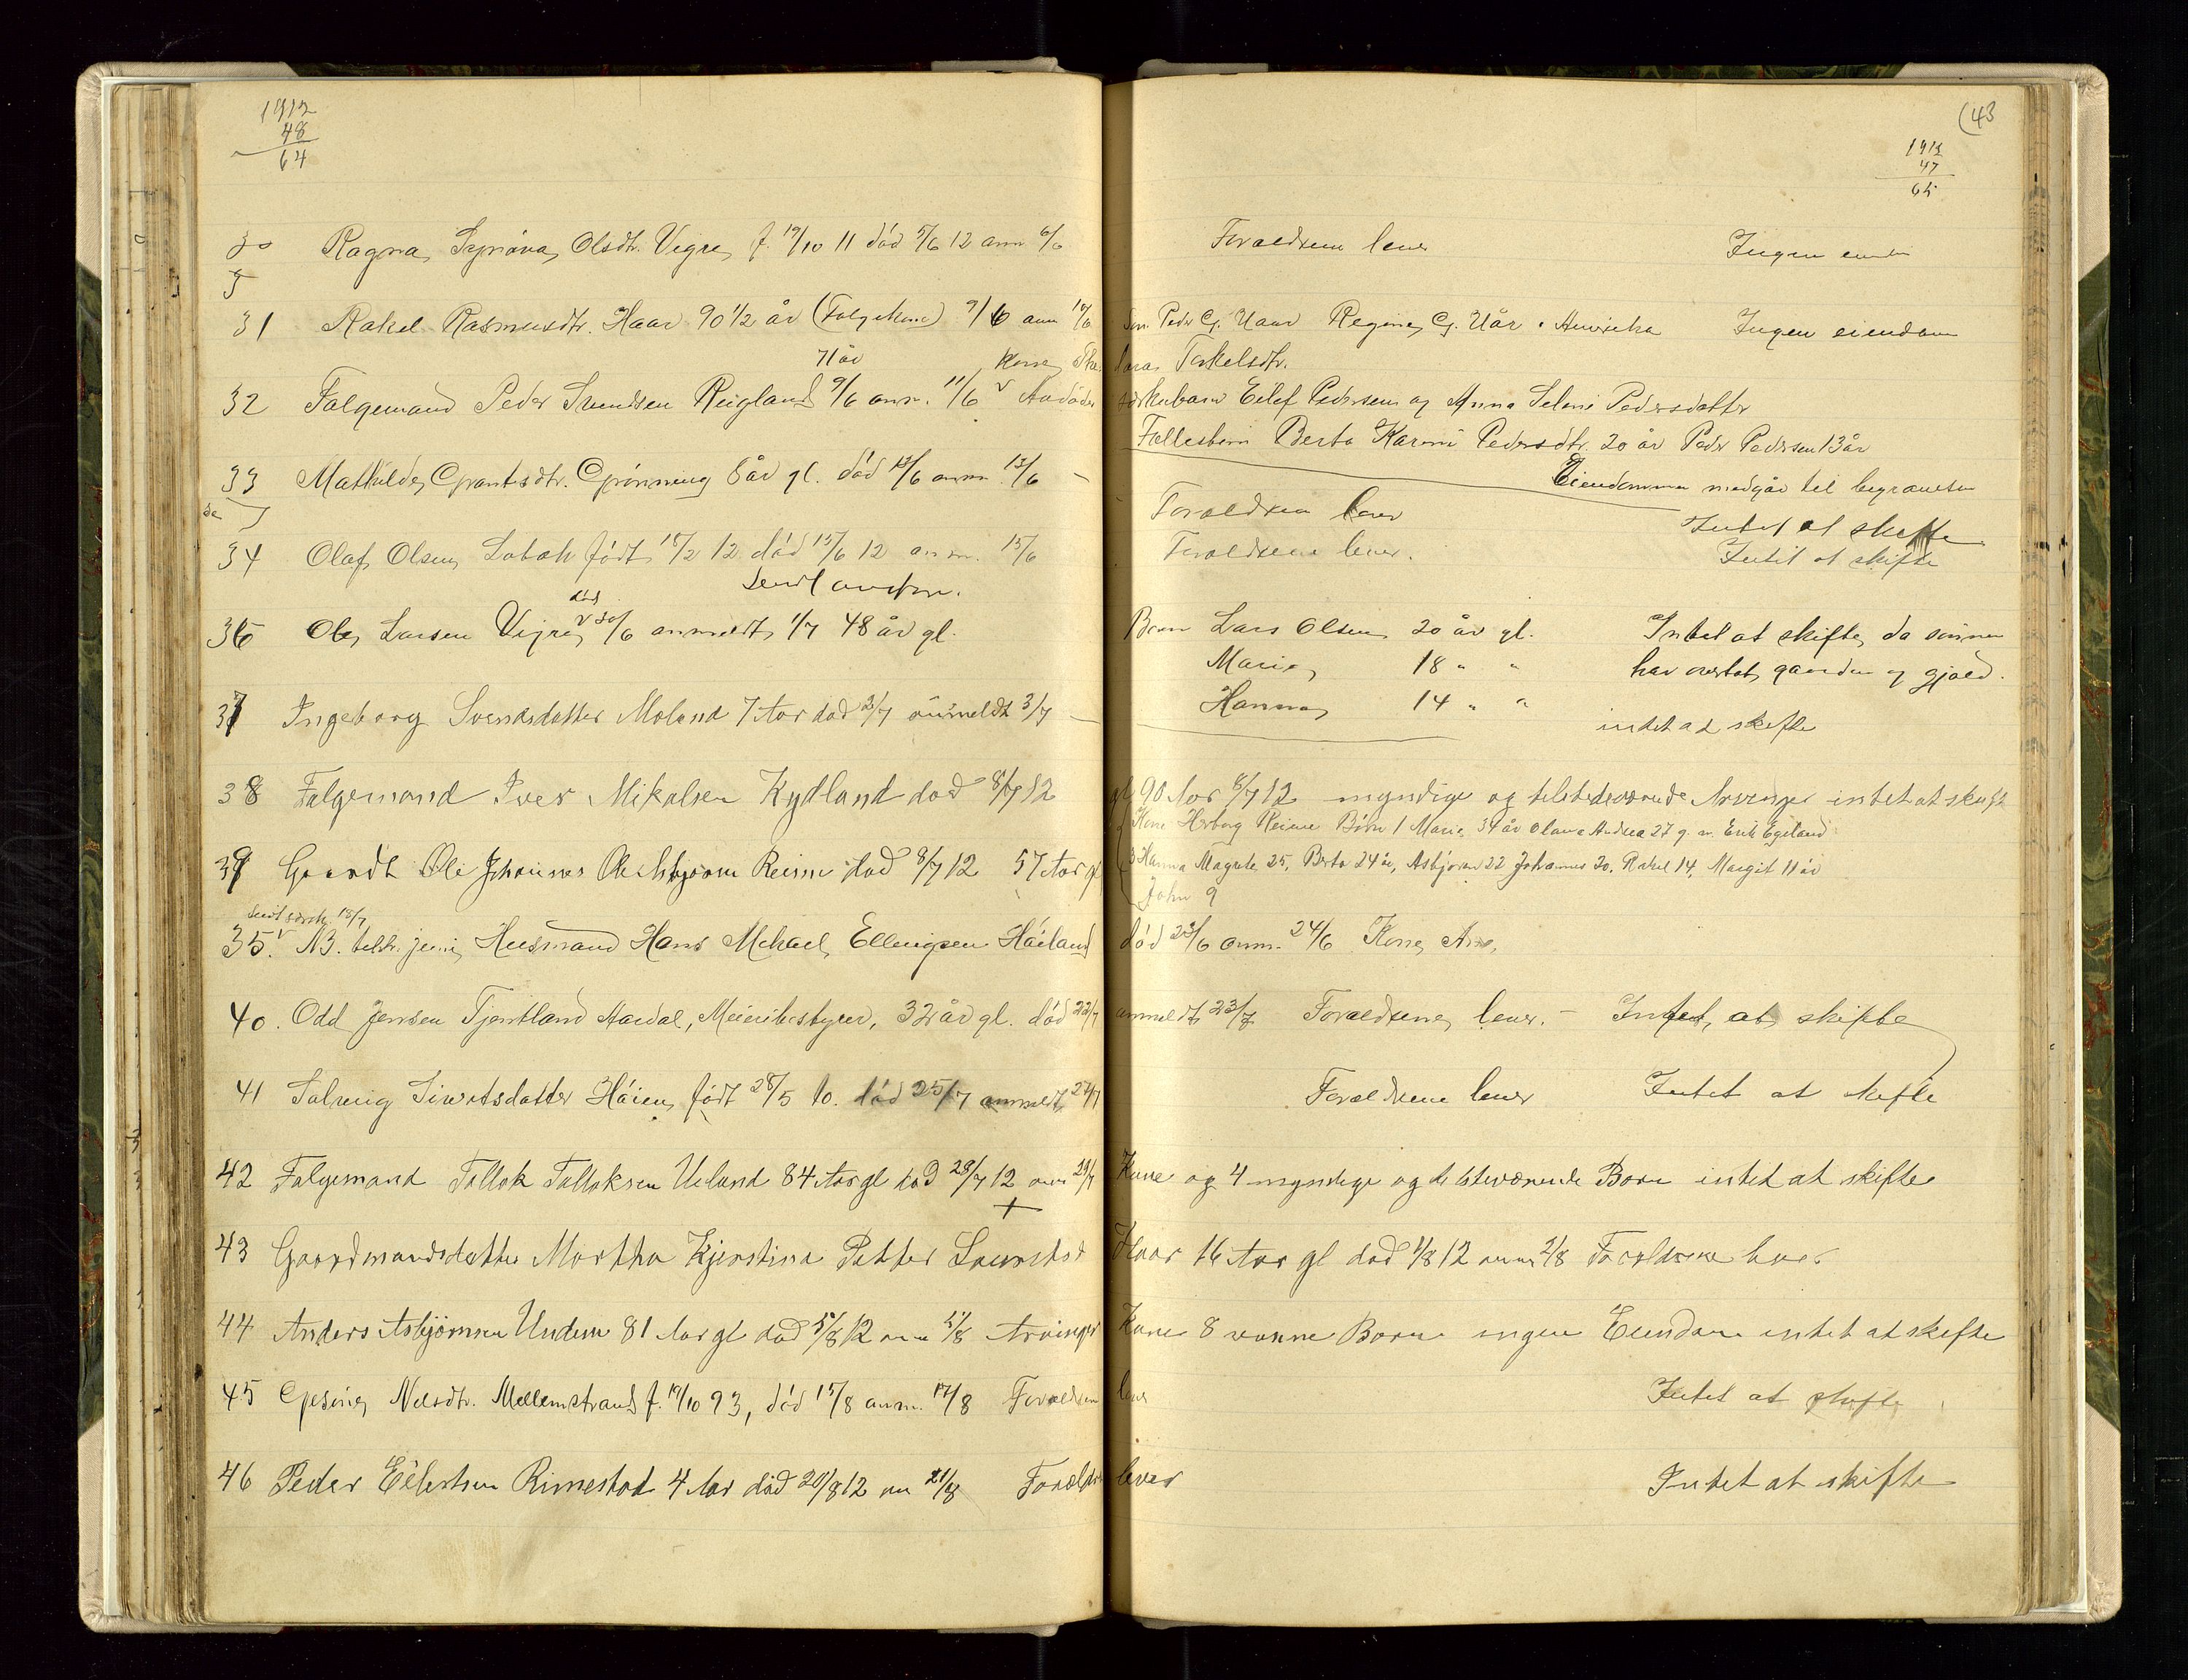 1912
48
64
(43
1912
47
65
30 Ragna Olsdtr. Vigre f. 19/10 11 død 5/6 12 anm 6/6 Forældrene lever Ingen
31 Rakel Rasmusdtr. Haar 90 1/2 år (Folgekone) 9/6 anm 10/6 Peder G. Haar Regine G. Hår Amerika Ingen eiendom
71 år Kone Torkelsdtr.
32 Folgemand Peder Svendsen Reigland 9/6 anm. 11/6 Eilef Pedersen og Anna Selene Pedersdatter
Fællesbørn Berta Karine Pedersdtr. 20 år Peder Pedersen 13 år
Eiendommen medgår til begravelsen
33 Mathilde Grønning 8 år gl. død 12/6 anm. 13/6 Forældrene lever Intet at skifte
34 Olaf Olsen født 18/2 12 død 15/6 12 anm. 15/6 Forældrene lever. Intet at skifte
død
36 Ole Larsen Vigre 30/6 anmeldt 1/7 48 år gl. Børn Lars Olsen 20 år gl. Intet at skifte, da sønnen
Marie 18 " " har overtat gaarden og gjæld.
Hanna 14 " "
37 Ingeborg Svendsdatter Moland 7 Aar død 2/7 anmeldt 3/7 intet at skifte
38 Folgemand Iver Mikalsen Kydland død 8/7 12 gl 90 Aar 8/7 12 myndige og tilstedeværende Arvinger intet at skifte
Kone Herborg Reime Børn 1 Marie 34 år Olava Andrea 27 g. m. Erik Egeland
39 Gaardb Ole Johannes Reime død 8/7 12 57 Aar gl Hanna Magrete 25, Berta 24 år, Asbjørn 22 Johannes 20, Rakel 14, Margit 11 år
John 9
18/7
35. NB. juni Husmand Hans Mikael Ellingsen Håiland død 23/6 anm. 24/6 Kone Ane
40. Odd Jensen Tjentland Aardal, Meieribestyrer, 32 år gl. død 22/7 anmeldt 23/7 Forældrene lever. - Intet at skifte
41 Solveig Sivertsdatter Håien født 28/5 10. død 25/7 anmeldt 27/7 Forældrene lever Intet at skifte
42 Folgemand Tollak Tollaksen Ueland 84 Aar gl død 28/7 12 anm 29/7 Kone og 4 myndige og tilsteværende Børn intet at skifte
43 Gaardmandsdatter Martha Kjerstina Haar 16 Aar gl død 1/8 12 anm 2/8 Forældrene lever
44 Anders Asbjørnsen Undem 81 Aar gl død 5/8 12 anm 5/8 Arvinger Kone 8 voxne Børn ingen Eiendom intet at skifte
45 Gesine Nilsdtr. Mellemstrand f. 19/10 93, død 15/8 anm. 17/8 Forældrene lever Intet at skifte
46 Peder Eilertsen Rimestad 4 Aar død 20/8 12 an 21/8 Forældre lever Intet at skifte